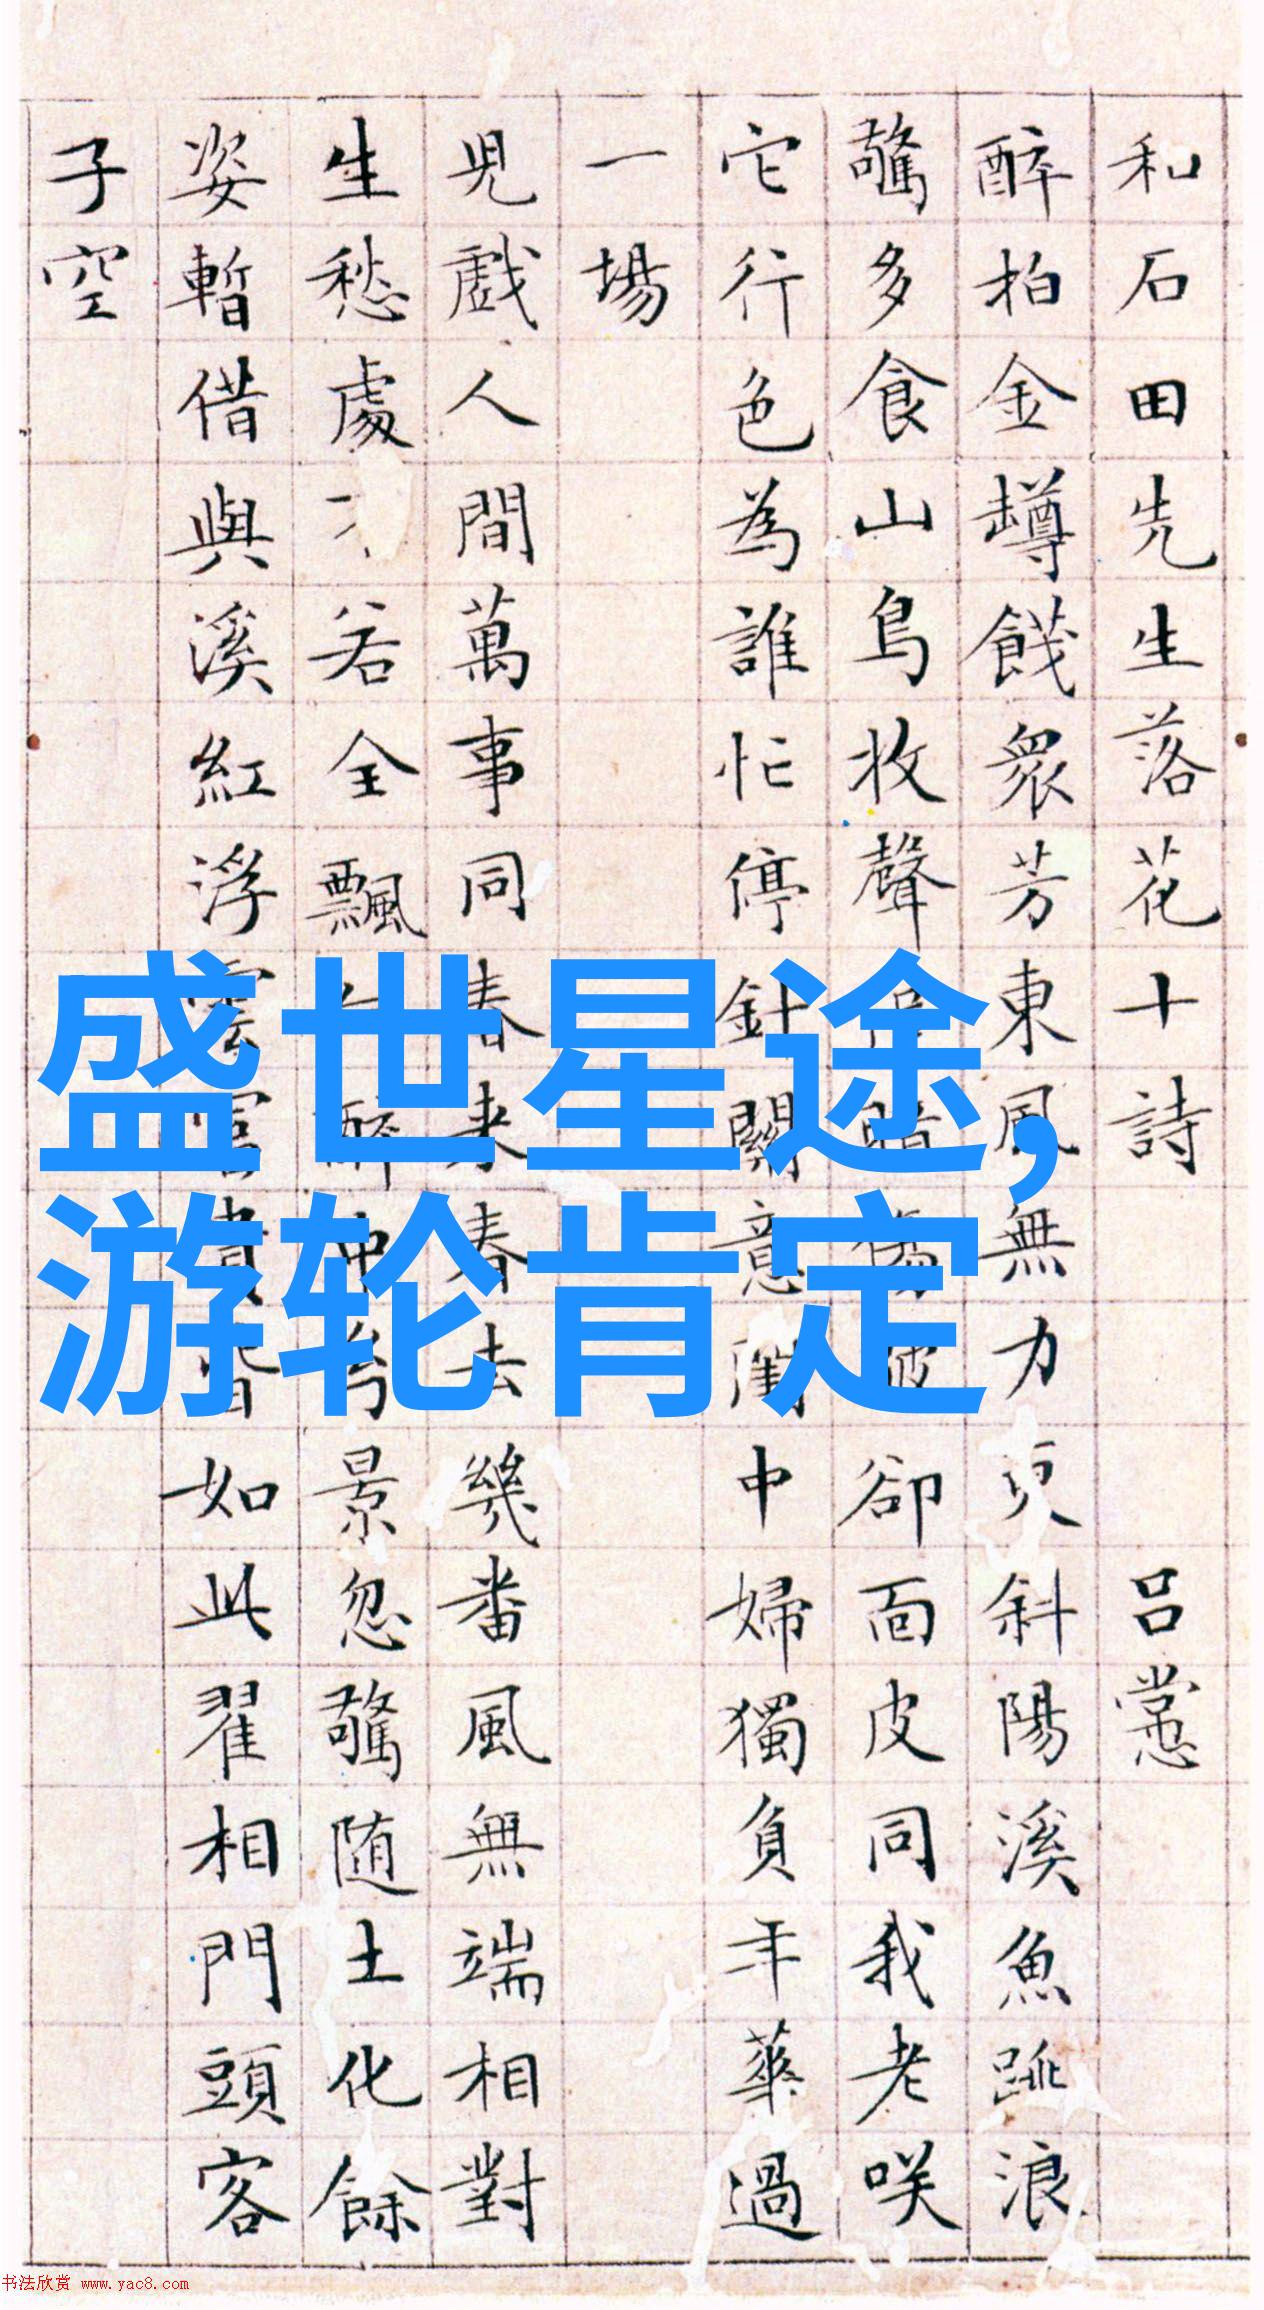 和石田先生落花十詩 呂㦂
醉拍金罇餞衆芳東風無力更斜陽溪魚跳浪
驚多食山鳥收聲暗卻面皮同我老咲
它行色為誰忙停針關意閨中婦獨負年華過
一場
兒戲人間萬事同春来春去幾番風無端相對
生愁處若全飄醉景忽驚随土化餘
姿暫借與溪紅浮雲富貴皆如此翟相門頭客
子空
盛世星途,
游轮肯定
书法欣赏 www.yac8.com